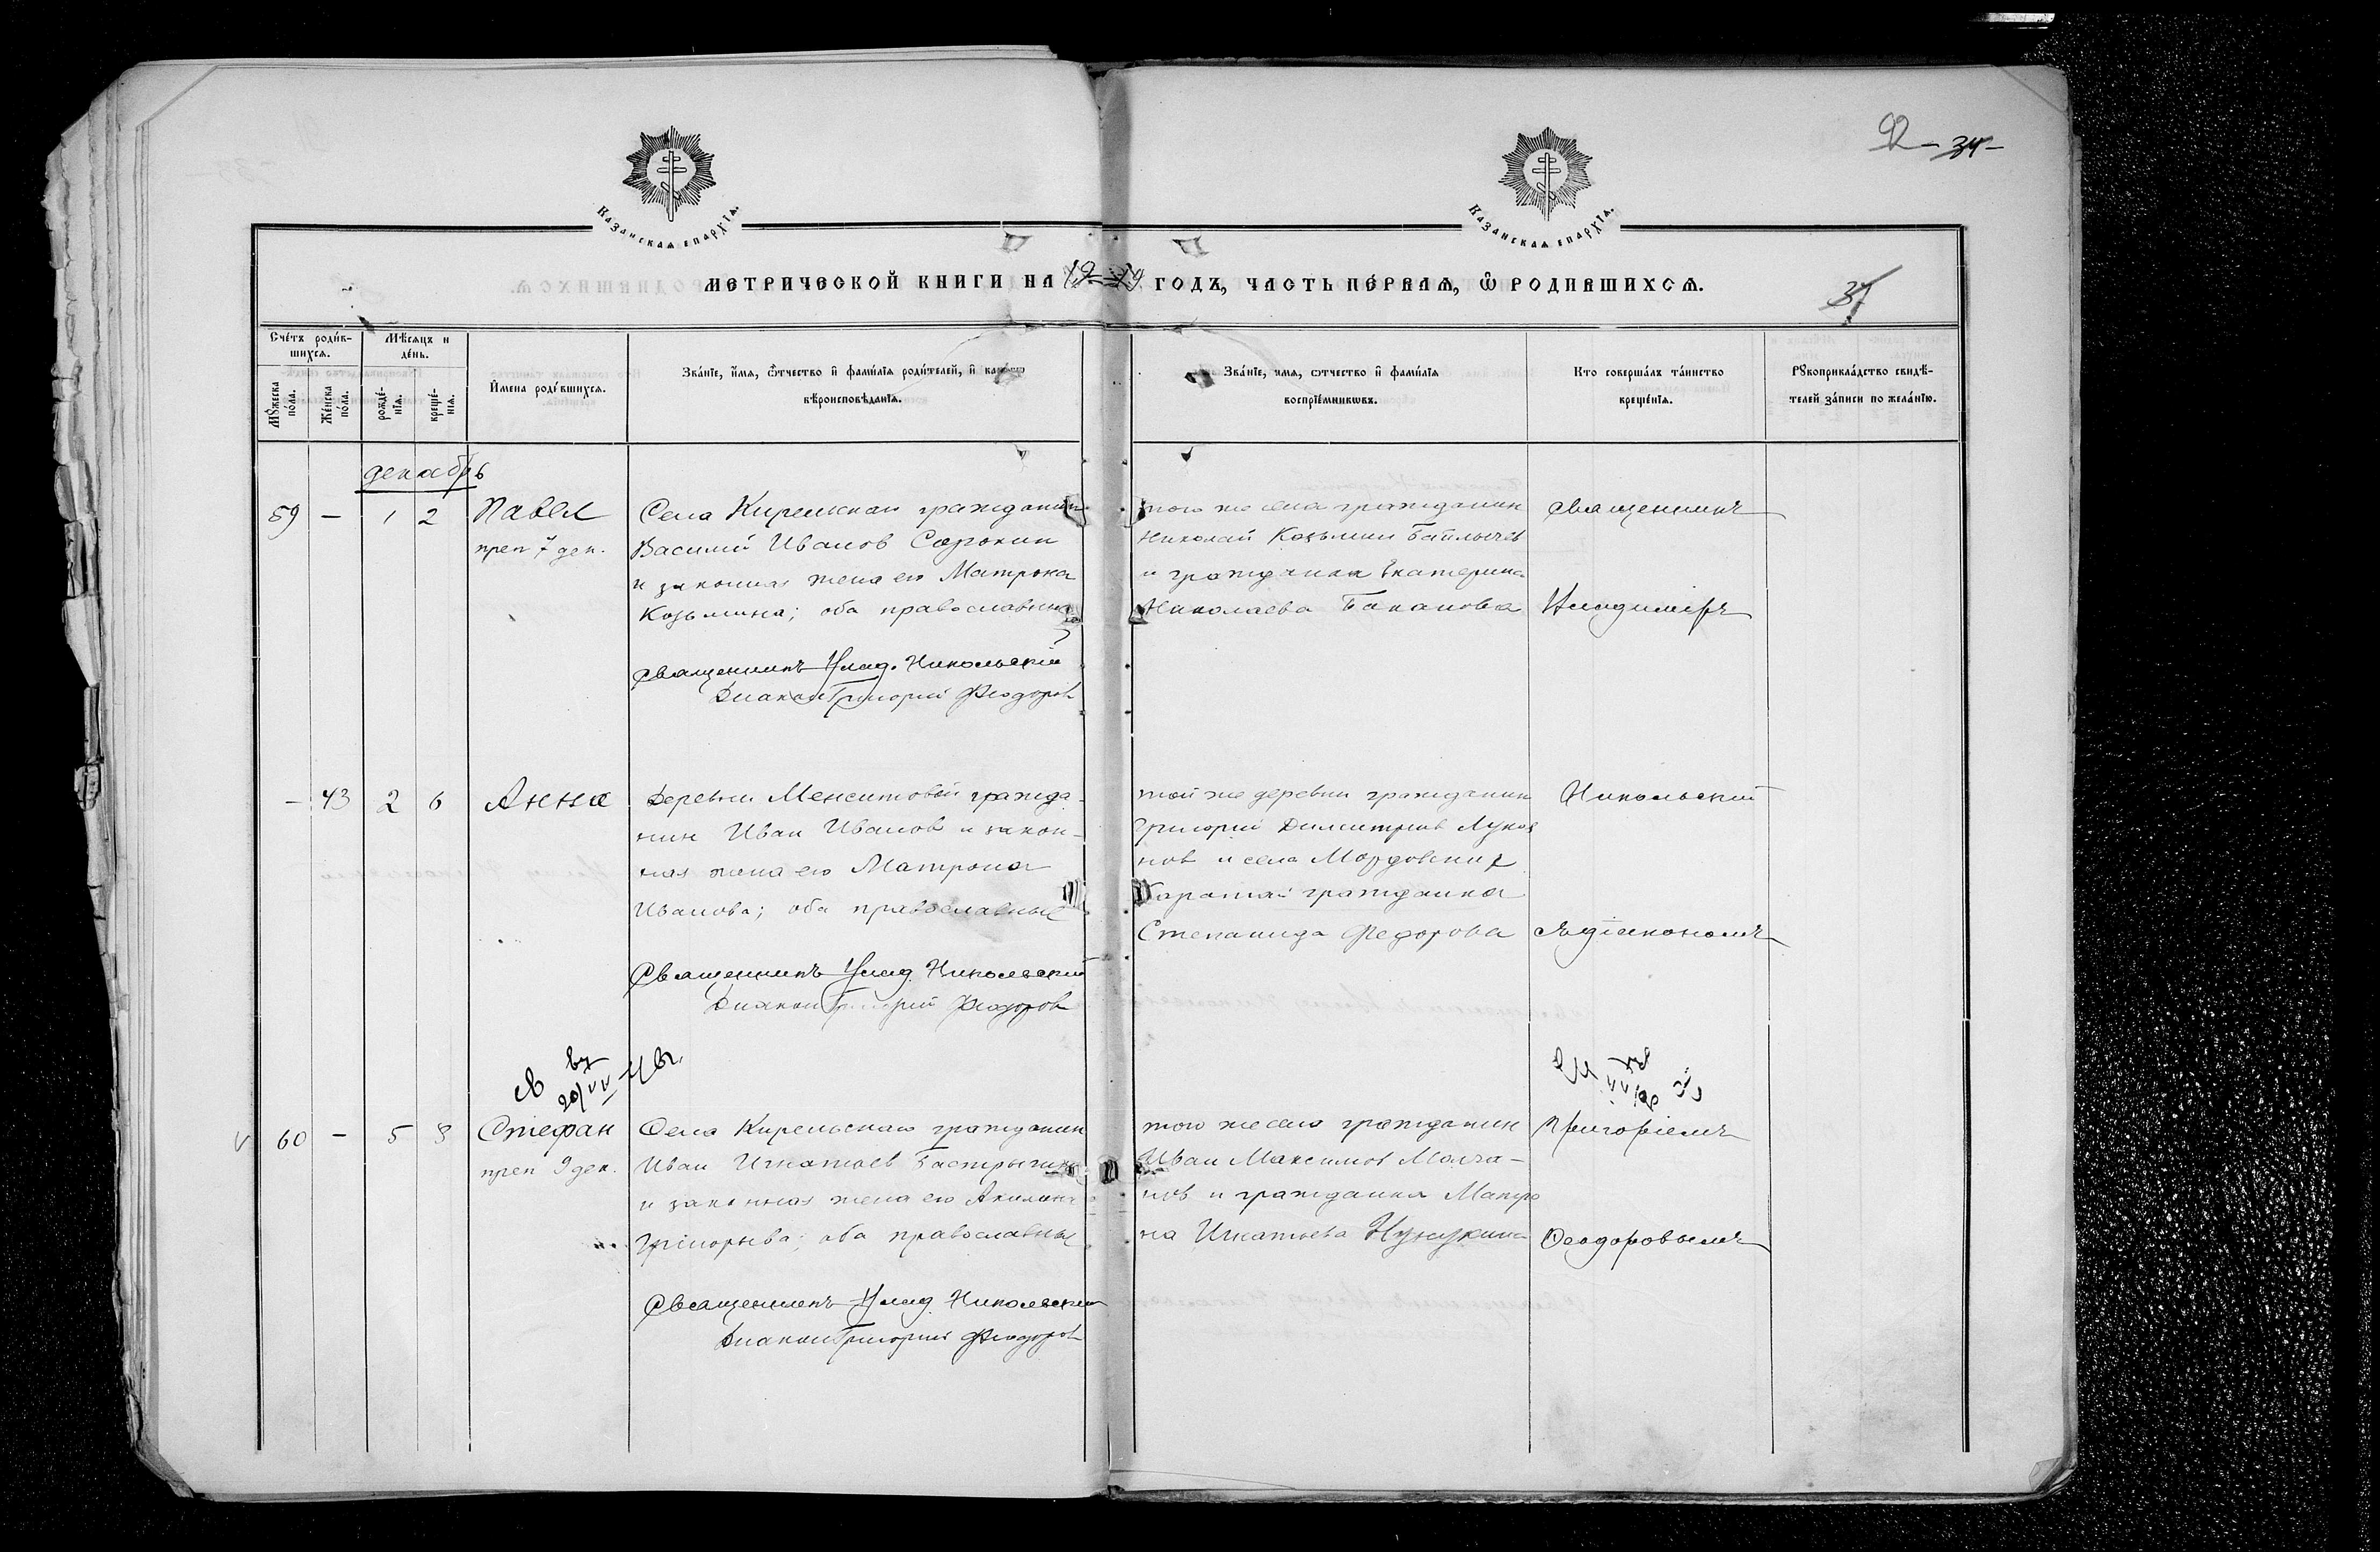 92 - 34 -
Казанская епархїа.
Казанская епархїа.
МЕТРИЧЕСКОЙ КНИГИ НА 19 19 ГОДЪ, ЧАСТЬ ПЕ́РВАЯ, Ѡ РОДИВШИХСЯ.
37
Сче́тъ роди́вшихся.
Мѣ́сяцъ и де́нь.
Мꙋ́жеска по́ла.
Же́нска по́ла.
рожде́нїя.
креще́нїя.
И́мена роди́вшихся.
Зва́нїе, и́мя, ѻ́тчество и҆ фами́лїя роди́телей, и҆ како́гѡ
вѣроисповѣ́данїя.
Зва́нїе, имя, ѻтчество и҆ фами́лїя
воспрїе́мниковъ.
Кто соверша́лъ та́инство
креще́нїя.
Рꙋкоприкла́дство свидѣ́-
телей за́писи по жела́нїю.
декабрь
59 - 1 2 Павел
преп 7 дек.
Села Кирельскаго гражданин
Василий Иванов Сорокин
и законная жена его Матрона
Козьмина; оба православные
Священникъ Влад. Никольскій
Диакон Григорий Феодоров
того же села гражданин
Николай Козьмин
и гражданка Екатерина
Николаева Баканова
Священникъ
Владиміръ
- 43 2 6 Анна
Деревни Менситовой гражда-
нин Иван Иванов и закон-
ная жена его Матрона
Иванова; оба православные
Священникъ Влад. Никольский
Диакон Григорий Феодоров
той же деревни гражданин
Григорий Димитриев Лукоя
нов и села Мордовских
Каратай гражданка
Степанида Федорова
Никольский
съ діакономъ
20/VII
V 60 - 5 8 Стефан
преп 9 дек.
Села Кирельскаго гражданин
Иван Игнатьев Бастрыгин
и законная жена его Акилина
Григорьева; оба православные
Священникъ Влад. Никольский
Диакон Григорий Феодоров
того же села гражданин
Иван Максимов Молча-
нов и гражданка Матро
на Игнатьева
Григоріемъ
Феодоровымъ